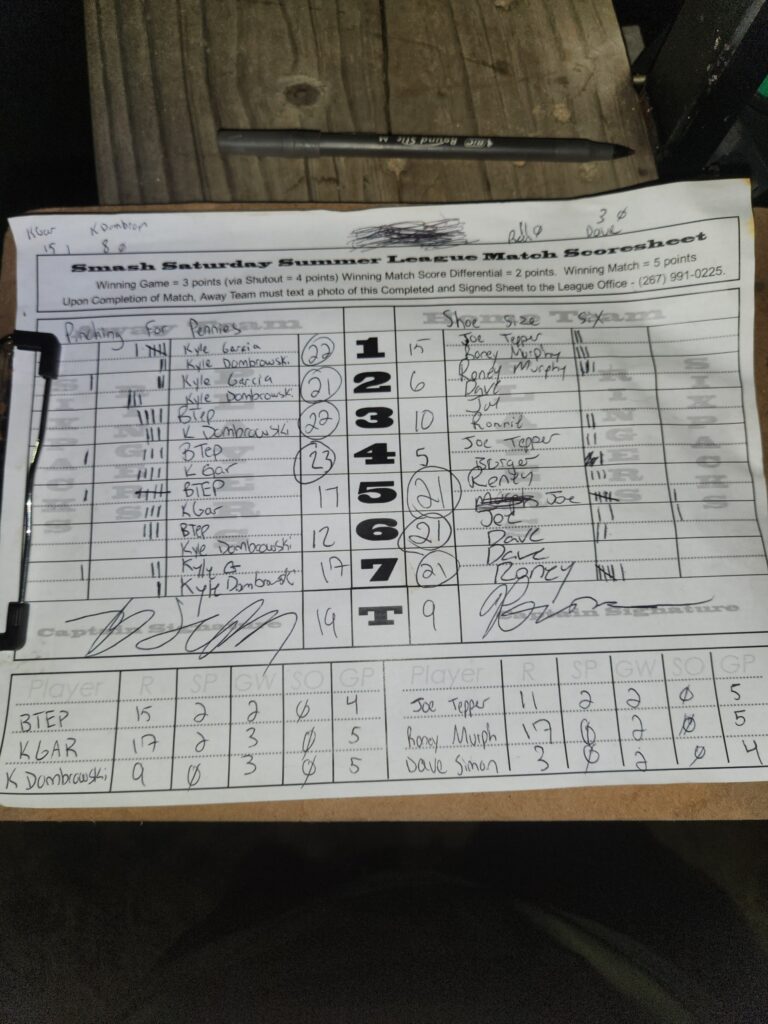 BIC Round Stic M
KGar K Dombrow 3 Ø
15 1 8 Ø Dave
Smash Saturday Summer League Match Scoresheet
Winning Game = 3 points (via Shutout = 4 points) Winning Match Score Differential = 2 points. Winning Match = 5 points
Upon Completion of Match, Away Team must text a photo of this Completed and Signed Sheet to the League Office - (267) 991-0225.
Pinching For Pennies Shoe Size Six
Kyle Garcia 22 1 15 Joe Tepper
Kyle Dombrowski Roney Murphy
Kyle Garcia 21 2 6 Roney Murphy
Kyle Dombrowski Dave
BTEP 22 3 10 Joe
K Dombrowski Ronnie
BTEP 23 4 5 Joe Tepper
K Gar Burger
BTEP 17 5 21 Roney
KGar Joe
BTep 12 6 21 Joe
Kyle Dombrowski Dave
Kyle G 17 7 21 Dave
Kyle Dombrowski Roney
Captain Signature 19 T 9 Captain Signature
Player R SP GW SO GP Player R SP GW SO GP
BTEP 15 2 2 Ø 4 Joe Tepper 11 2 2 Ø 5
KGAR 17 2 3 Ø 5 Roney Murph 17 Ø 2 Ø 5
K Dombrowski 9 Ø 3 Ø 5 Dave Simon 3 Ø 2 Ø 4